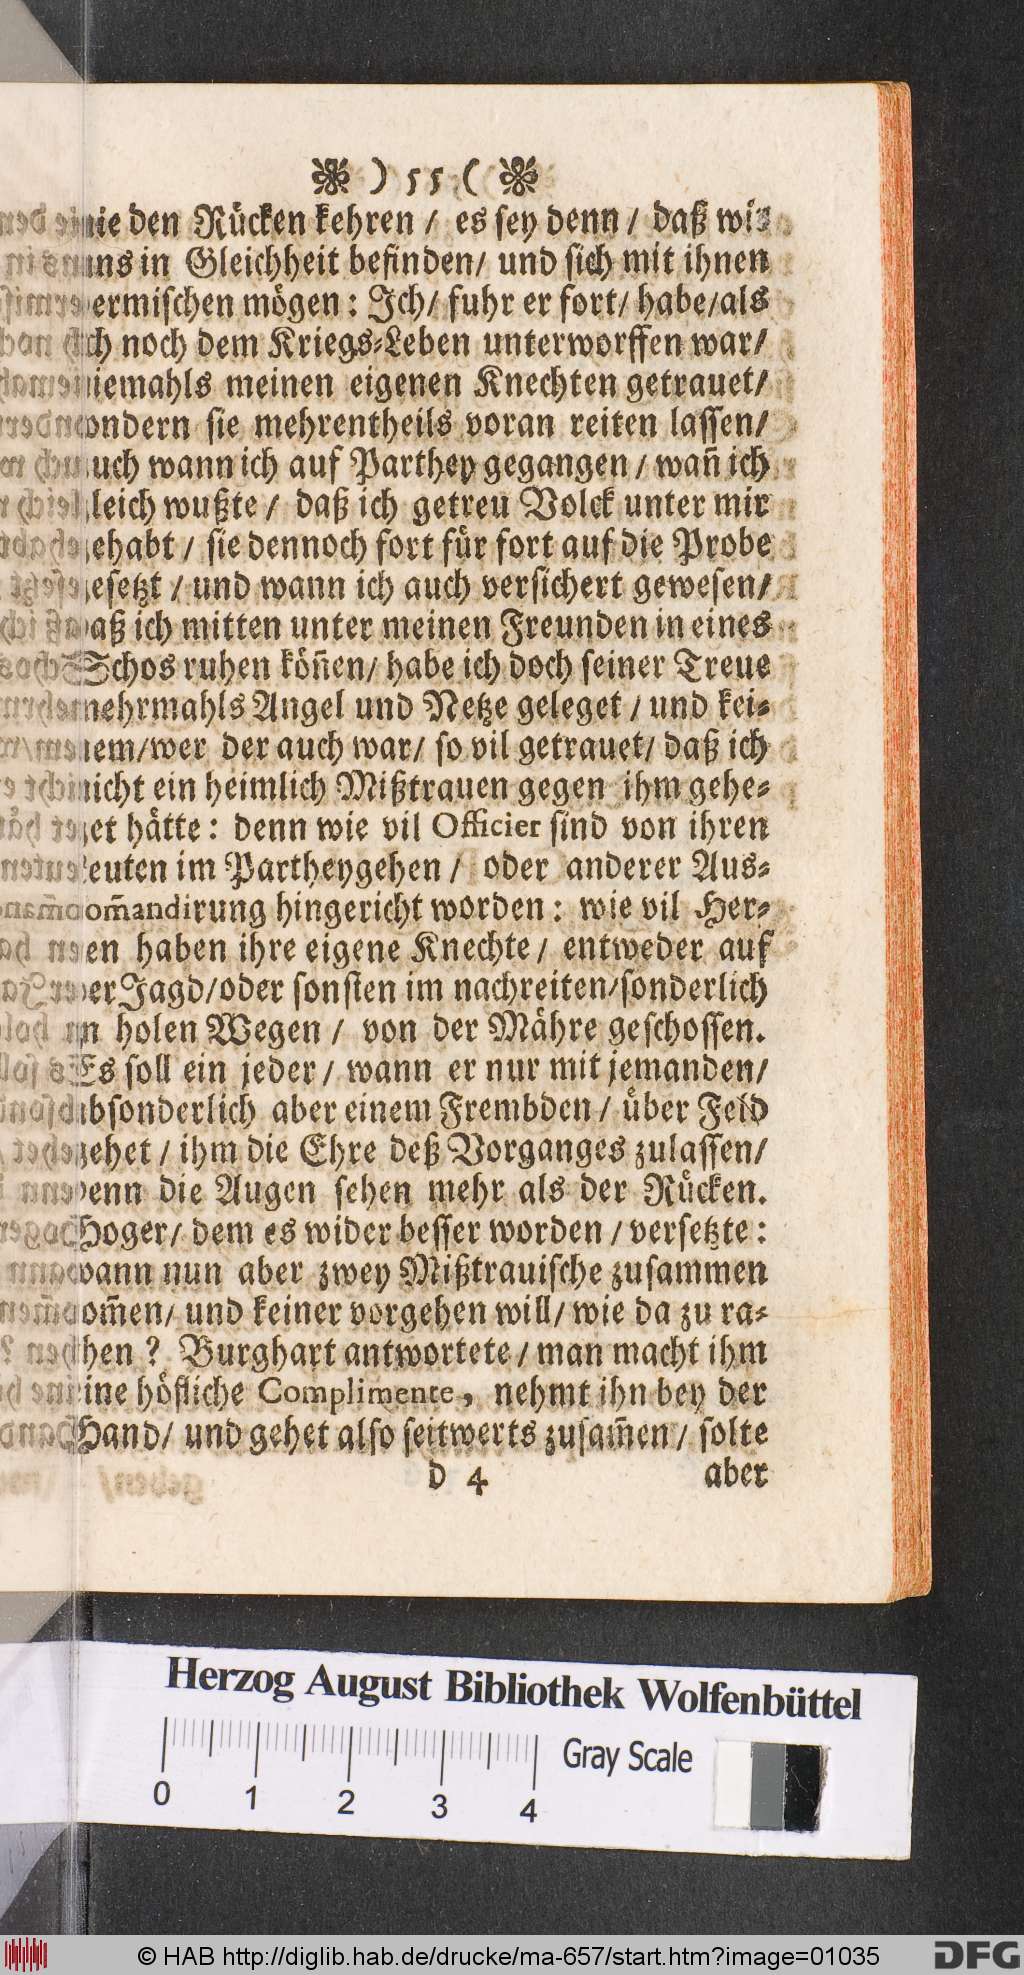 ) 55 (
nie den Rücken kehren / es sey denn / daß wir
uns in Gleichheit befinden/ und sich mit ihnen
vermischen mögen: Ich/ fuhr er fort/ habe/als
ich noch dem Kriegs-Leben unterworffen war/
niemahls meinen eigenen Knechten getrauet/
sondern sie mehrentheils voran reiten lassen/
auch wann ich auf Parthey gegangen / wañ ich
gleich wußte / daß ich getreu Volck unter mir
gehabt / sie dennoch fort für fort auf die Probe
gesetzt / und wann ich auch versichert gewesen/
daß ich mitten unter meinen Freunden in eines
Schos ruhen köñen/ habe ich doch seiner Treue
mehrmahls Angel und Netze geleget / und kei-
nem/wer der auch war/ so vil getrauet/ daß ich
nicht ein heimlich Mißtrauen gegen ihm gehe-
get hätte: denn wie vil Officier sind von ihren
Leuten im Partheygehen / oder anderer Aus-
com̃andirung hingericht worden: wie vil Her-
ren haben ihre eigene Knechte / entweder auf
der Jagd/oder sonsten im nachreiten/sonderlich
in holen Wegen / von der Mähre geschossen.
Es soll ein jeder / wann er nur mit jemanden/
absonderlich aber einem Frembden / über Feld
gehet / ihm die Ehre deß Vorganges zulassen/
denn die Augen sehen mehr als der Rücken.
Hoger/ dem es wider besser worden / versetzte:
wann nun aber zwey Mißtrauische zusammen
kom̃en/ und keiner vorgehen will/ wie da zu ra-
then ? Burghart antwortete / man macht ihm
eine höfliche Complimente, nehmt ihn bey der
Hand/ und gehet also seitwerts zusam̃en / solte
d 4 aber
Herzog August Bibliothek Wolfenbüttel
0 1 2 3 4 Gray Scale
© HAB http://diglib.hab.de/drucke/ma-657/start.htm?image=01035 DFG